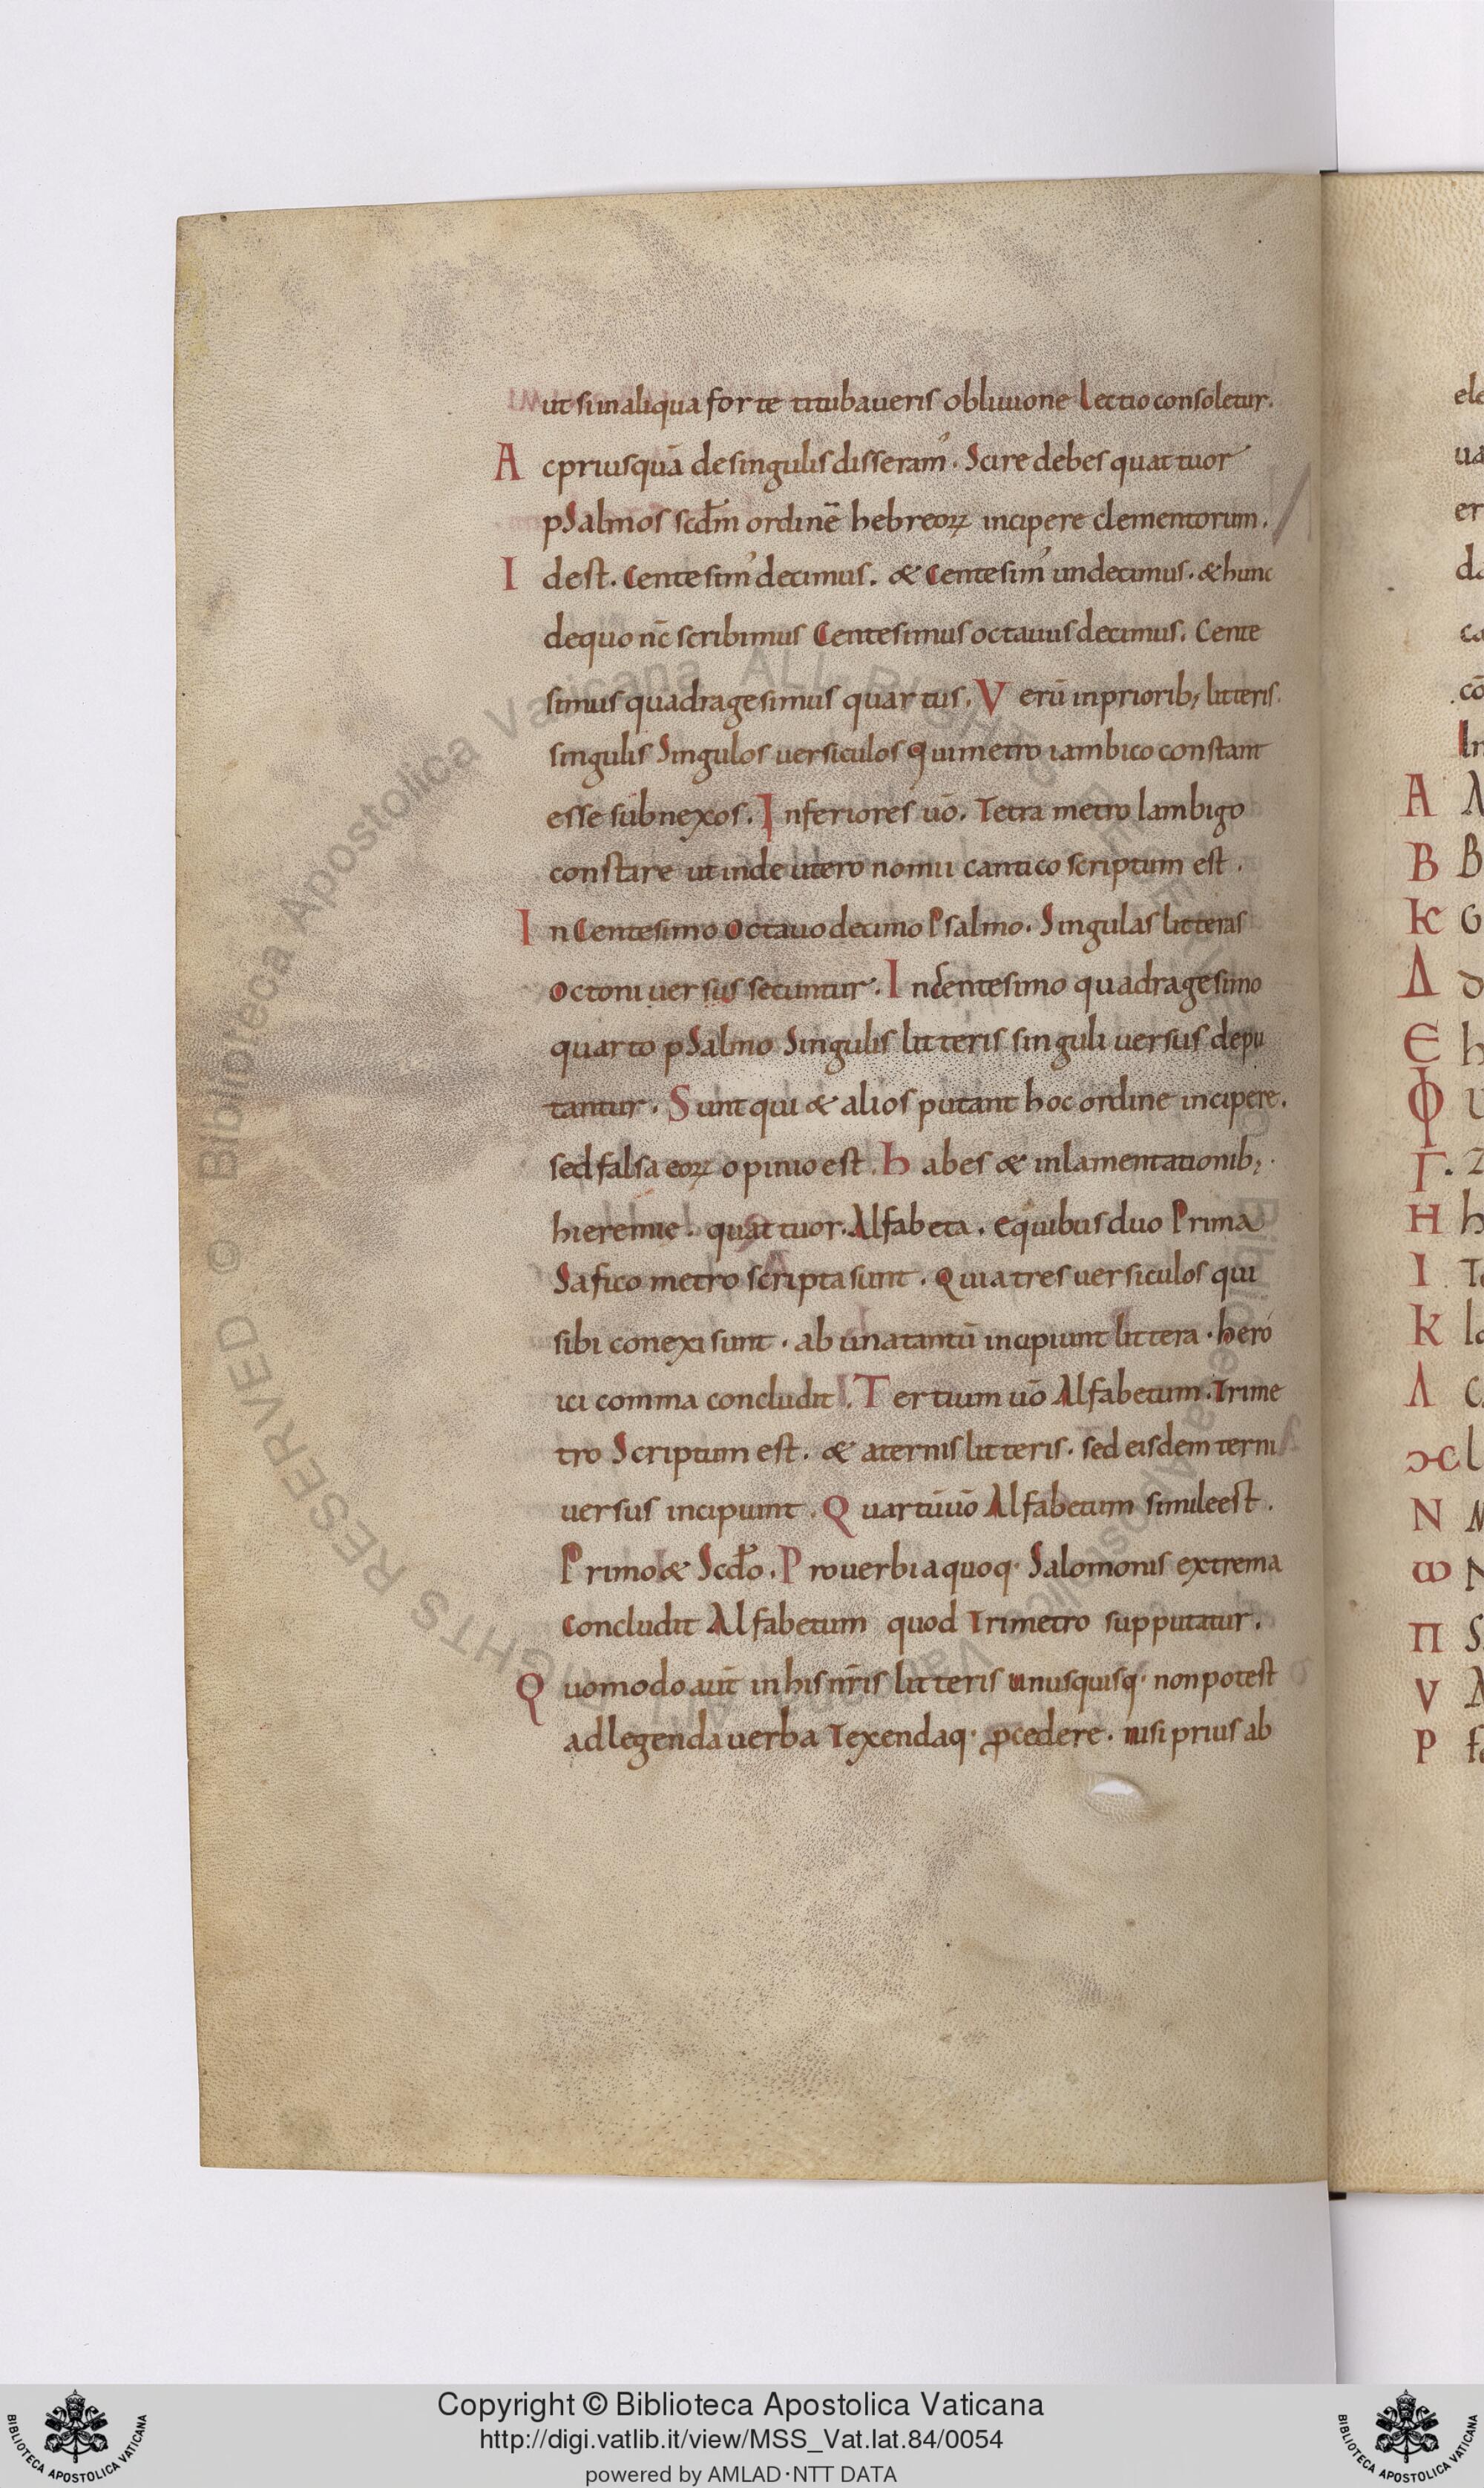 ut si inaliqua forte titubaueris obliuione Lectio consoletur.
A cpriusquā desingulis disseram᾿. Scire debes quattuor
pSalmos scdm̄ ordinē hebreoꝝ incipere elementorum.
I dest. Centesim᾿ decimus. & Centesim᾿ undecimus. & hunc
dequo nc̄ scribimus Centesimus octauus decimus. Cente
simus quadragesimus quartus. V erū inpriorib; litteris.
singulis Singulos uersiculos Qui metro iambico constant
esse subnexos. I nferiores uō. Tetra metro Iambigo
constare ut inde utero nomii cantico scriptum est.
I n Centesimo Octauo decimo Psalmo. Singulas litteras
Octoni uersus secuntur. I nCentesimo quadragesimo
quarto pSalmo Singulis litteris singuli uersus depu
tantur. S unt qui & alios putant hoc ordine incipere.
sed falsa eoꝝ opinio est. H abes & inlamentationib;.
hieremie. quattuor. Alfabeta. equibus duo Prima
Safico metro scripta sunt. Quia tres uersiculos qui
sibi conexi sunt. ab una tantū incipiunt littera. hero
ici comma concludit. T ertium uō Alfabetum. Trime
tro Scriptum est. & aternis litteris. sed eisdem terni
uersus incipiunt. Q uartū uō Alfabetum simile est.
P rimo & Scdo̅. P rouerbia quoq· Salomonis extrema
Concludit Alfabetum quod Trimetro supputatur.
Q uomodo aut̄ inhis nr̄is litteris unusquisq· non potest
adlegenda uerba Texendaq· ꝓcedere. nisi prius ab
A
B
K
Δ
E
Φ
Γ.
H
I
K
Λ
N
ω
Π
V
P
Biblioteca Apostolica Vaticana ALL RIGHTS RESERVED ©
Copyright © Biblioteca Apostolica Vaticana
http://digi.vatlib.it/view/MSS_Vat.lat.84/0054
powered by AMLAD·NTT DATA
BIBLIOTECA APOSTOLICA VATICANA
BIBLIOTECA APOSTOLICA VATICANA